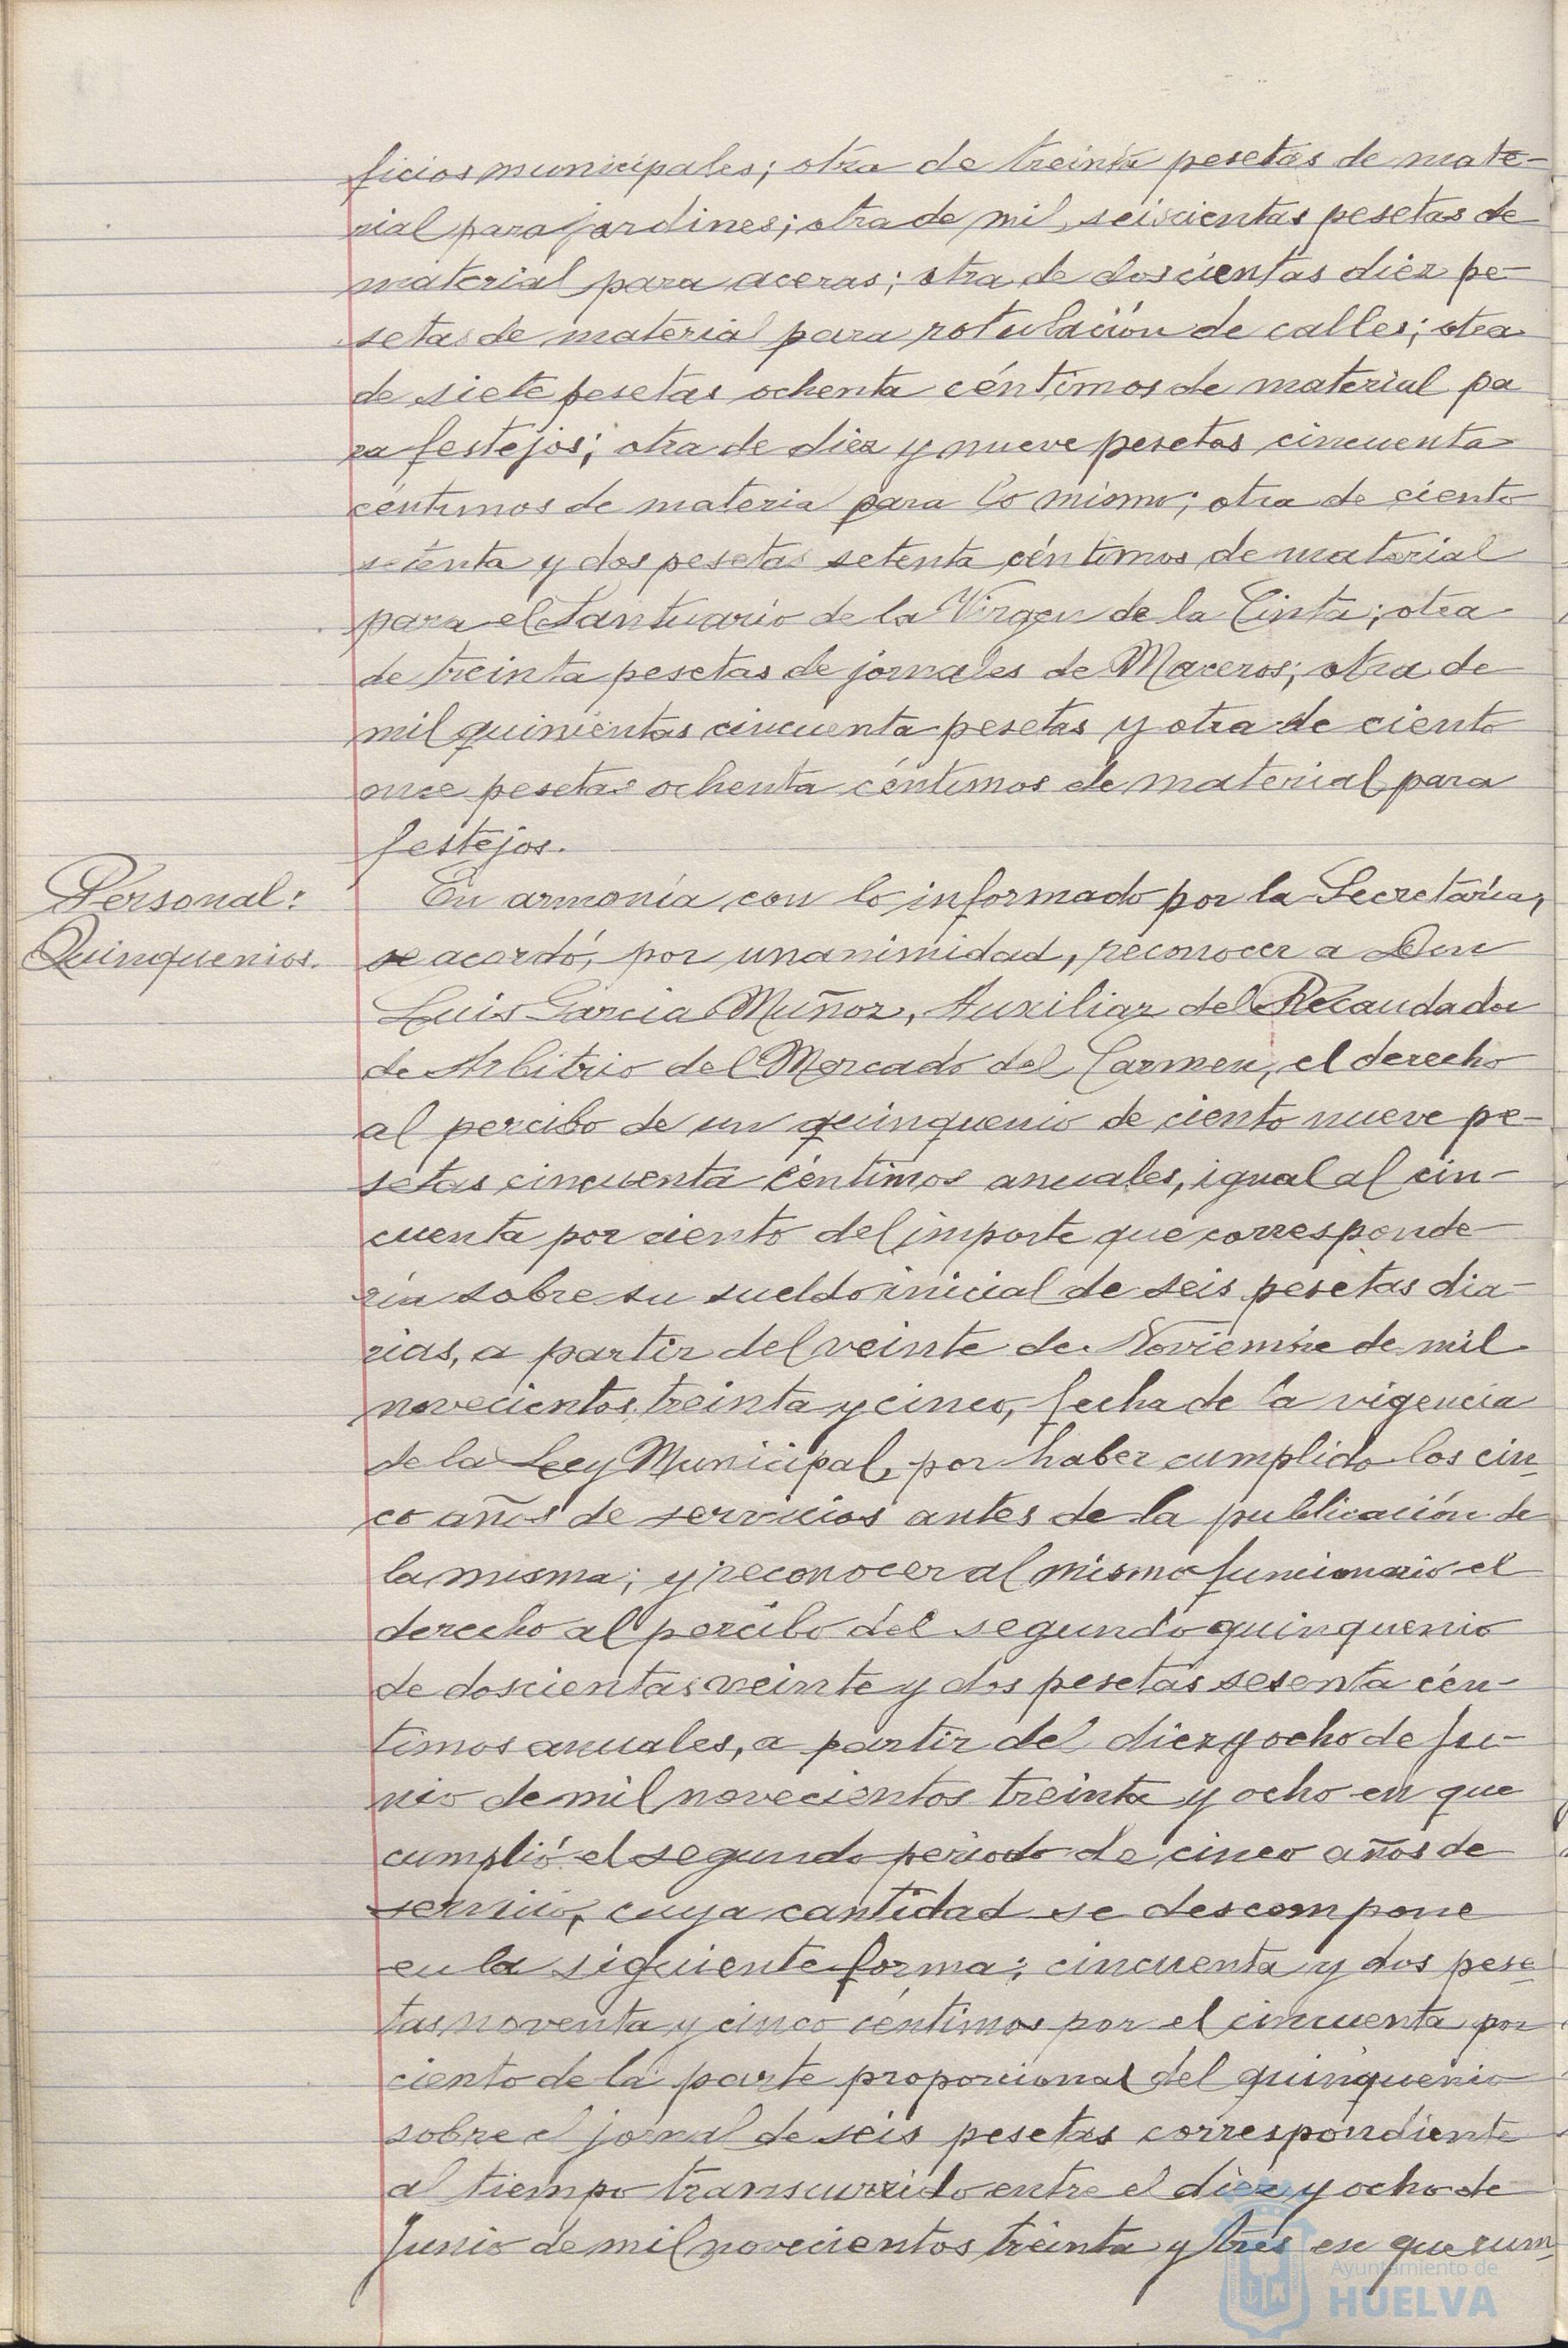 ficios municipales; otra de treinta pesetas de mate-
rial para jardines; otra de mil seiscientas pesetas de
material para aceras; otra de doscientas diez pe-
setas de material para rotulación de calles; otra
de siete pesetas ochenta céntimos de material pa
ra festejos; otra de diez y nueve pesetas cincuenta
céntimos de material para lo mismo; otra de ciento
setenta y dos pesetas setenta céntimos de material
para el Santuario de la Virgen de la Cinta; otra
de treinta pesetas de jornales de Maceros; otra de
mil quinientas cincuenta pesetas y otra de ciento
once pesetas ochenta céntimos de material para
festejos.
Personal:
Quinquenios.
En armonía con lo informado por la Secretaría,
se acordó, por unanimidad, reconocer a Don
Luis Garcia Muñoz, Auxiliar del Recaudador
de Arbitrio del Mercado del Carmen, el derecho
al percibo de un quinquenio de ciento nueve pe-
setas cincuenta céntimos anuales, igual al cin-
cuenta por ciento del importe que corresponde-
ría sobre su sueldo inicial de seis pesetas dia-
rias, a partir del veinte de Noviembre de mil
novecientos treinta y cinco, fecha de la vigencia
de la Ley Municipal, por haber cumplido los cin-
co años de servicios antes de la publicación de
la misma; y reconocer al mismo funcionario el
derecho al percibo del segundo quinquenio
de doscientas veinte y dos pesetas sesenta cén-
timos anuales, a partir del diez y ocho de Ju-
nio de mil novecientos treinta y ocho en que
cumplió el segundo periodo de cinco años de
servicio, cuya cantidad se descompone
en la siguiente forma: cincuenta y dos pese-
tas noventa y cinco céntimos por el cincuenta por
ciento de la parte proporcional del quinquenio
sobre el jornal de seis pesetas correspondiente
al tiempo transcurrido entre el diez y ocho de
Junio de mil novecientos treinta y tres en que cum-
Ayuntamiento de
HUELVA